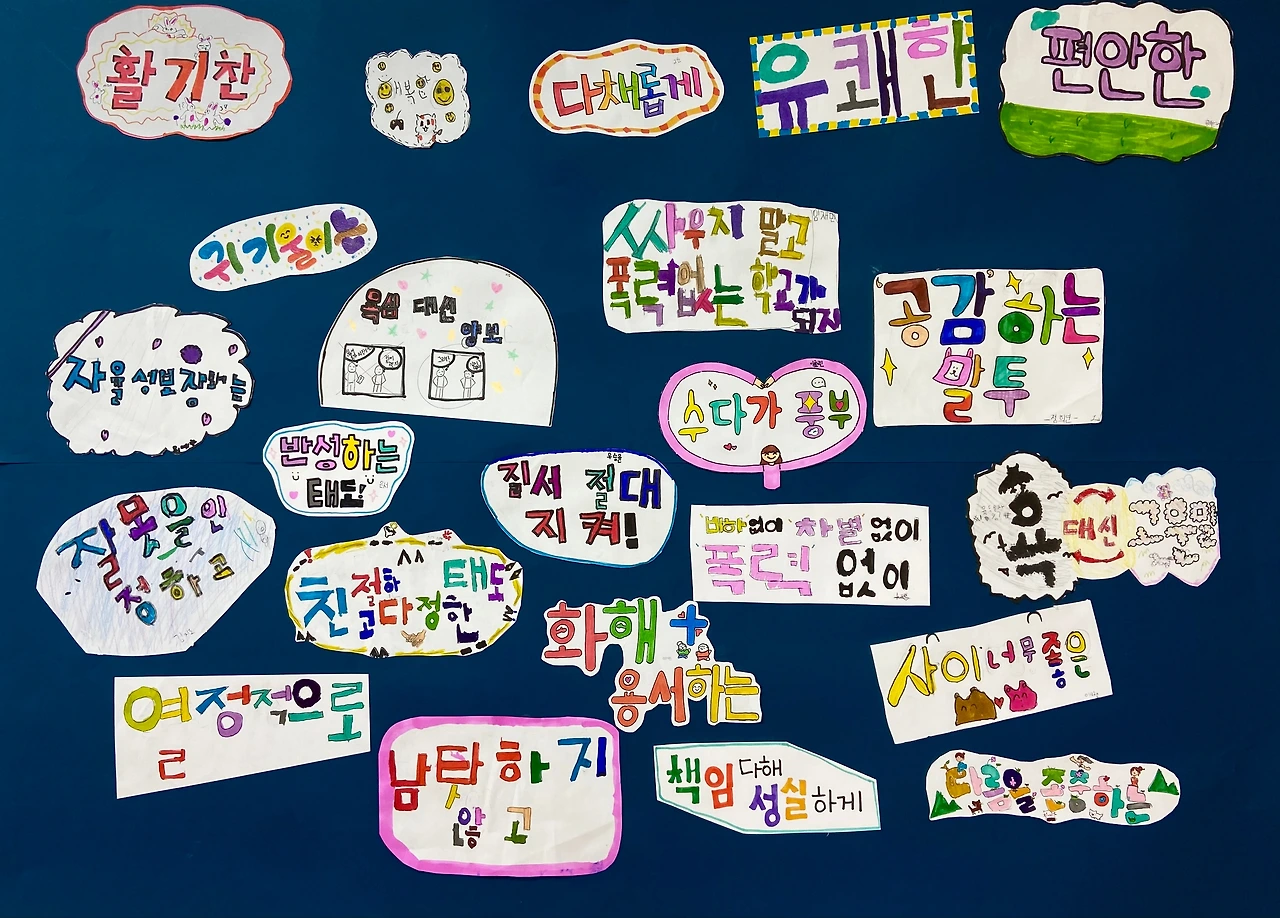 활기찬
행복한
다채롭게
유쾌한
편안한
귀 기울이는
싸우지 말고
폭력없는 학교가
되자
욕심 대신
양보
공감하는
말투
자율성보장하는
수다가 풍부
반성하는
태도!
질서 절대
지켜!
잘못을 인
정하고
비하없이 차별 없이
폭력 없이
대신
친절하
고다정한 태도
화해+
용서하는
사이 너무 좋은
열정적으로
남탓하지
않고
책임 다해
성실하게
다름을 존중하는